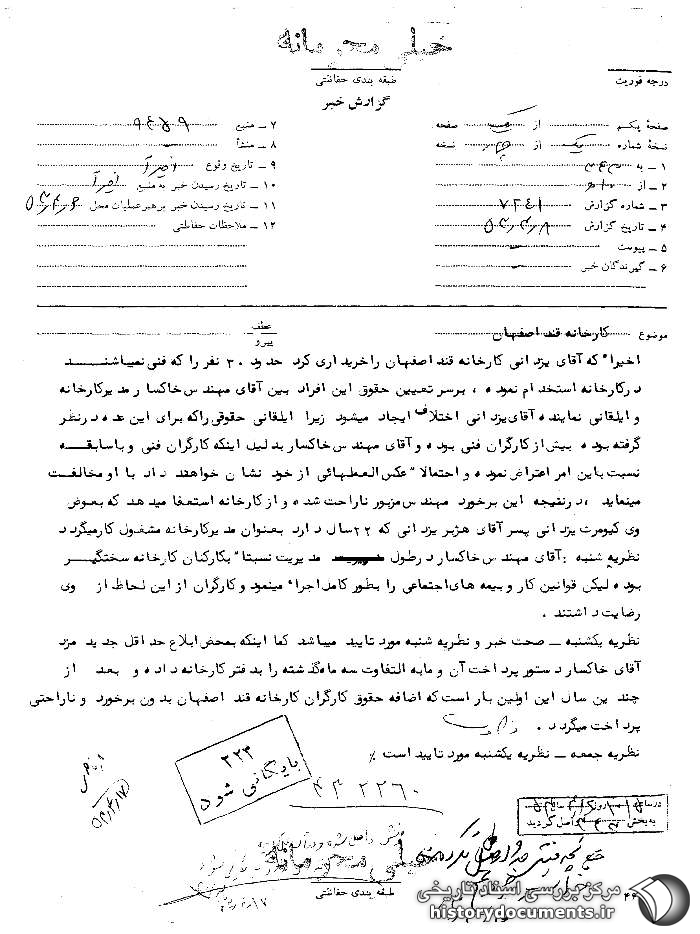 خیلی محرمانه
طبقه بندی حفاظتی
درجه فوریت
گزارش خبر
صفحهٔ یکم از یک صفحه
نسخهٔ شماره یک از نسخه
۱ ـ به
۲ ـ از
۳ ـ شماره گزارش ۷۲۴۱
۴ ـ تاریخ گزارش ۵۳٫۴٫۸
۵ ـ پیوست ـ
۶ ـ گیرندگان خبر ـ
۷ ـ منبع
۸ ـ منشأ ـ
۹ ـ تاریخ وقوع اخیراً
۱۰ ـ تاریخ رسیدن خبر به منبع اخیراً
۱۱ ـ تاریخ رسیدن خبر برهبر عملیات محل
۱۲ ـ ملاحظات حفاظتی
موضوع کارخانه قند اصفهان
عطف
پیرو
اخیرا" که آقای یزدانی کارخانه قند اصفهان را خریداری کرد حدود ۳۰ نفر را که فنی نمیباشند
در کارخانه استخدام نموده ، برسر تعیین حقوق این افراد بین آقای مهندس خاکسار مدیر کارخانه
و ایلقانی نماینده آقای یزدانی اختلاف ایجاد میشود زیرا ایلقانی حقوقی را که برای این عده در نظر
گرفته بوده بیش از کارگران فنی بوده و آقای مهندس خاکسار بدلیل اینکه کارگران فنی و با سابقه
نسبت باین امر اعتراض نموده و احتمالا" عکس العملهائی از خود نشان خواهند داد با او مخالفت
مینماید ، در نتیجه این برخورد مهندس مزبور ناراحت شده و از کارخانه استعفا میدهد که بعوض
وی کیومرث یزدانی پسر آقای هژبر یزدانی که ۲۲ سال دارد بعنوان مدیر کارخانه مشغول کار میگردد
نظریه شنبه : آقای مهندس خاکسار در طول مدیریت نسبتا" بکارکنان کارخانه سختگیر
بوده لیکن قوانین کار و بیمه های اجتماعی را بطور کامل اجراء مینمود و کارگران از این لحاظ از وی
رضایت داشتند .
نظریه یکشنبه ـ صحت خبر و نظریه شنبه مورد تایید میباشد کما اینکه بمحض ابلاغ حداقل جدید مزد
آقای خاکسار دستور پرداخت آن و مابه التفاوت سه ماه گذشته را بدفتر کارخانه داده و بعد از
چندین سال این اولین بار است که اضافه حقوق کارگران کارخانه قند اصفهان بدون برخورد و ناراحتی
پرداخت میگردد .
نظریه جمعه ـ نظریه یکشنبه مورد تایید است ٪
۲۲۳
بایگانی شود
۴۳ ۲۲۶۰
در ساعت روز
به بخش واصل گردید
خیلی محرمانه
طبقه بندی حفاظتی
مرکز بررسی اسناد تاریخی
historydocuments.ir